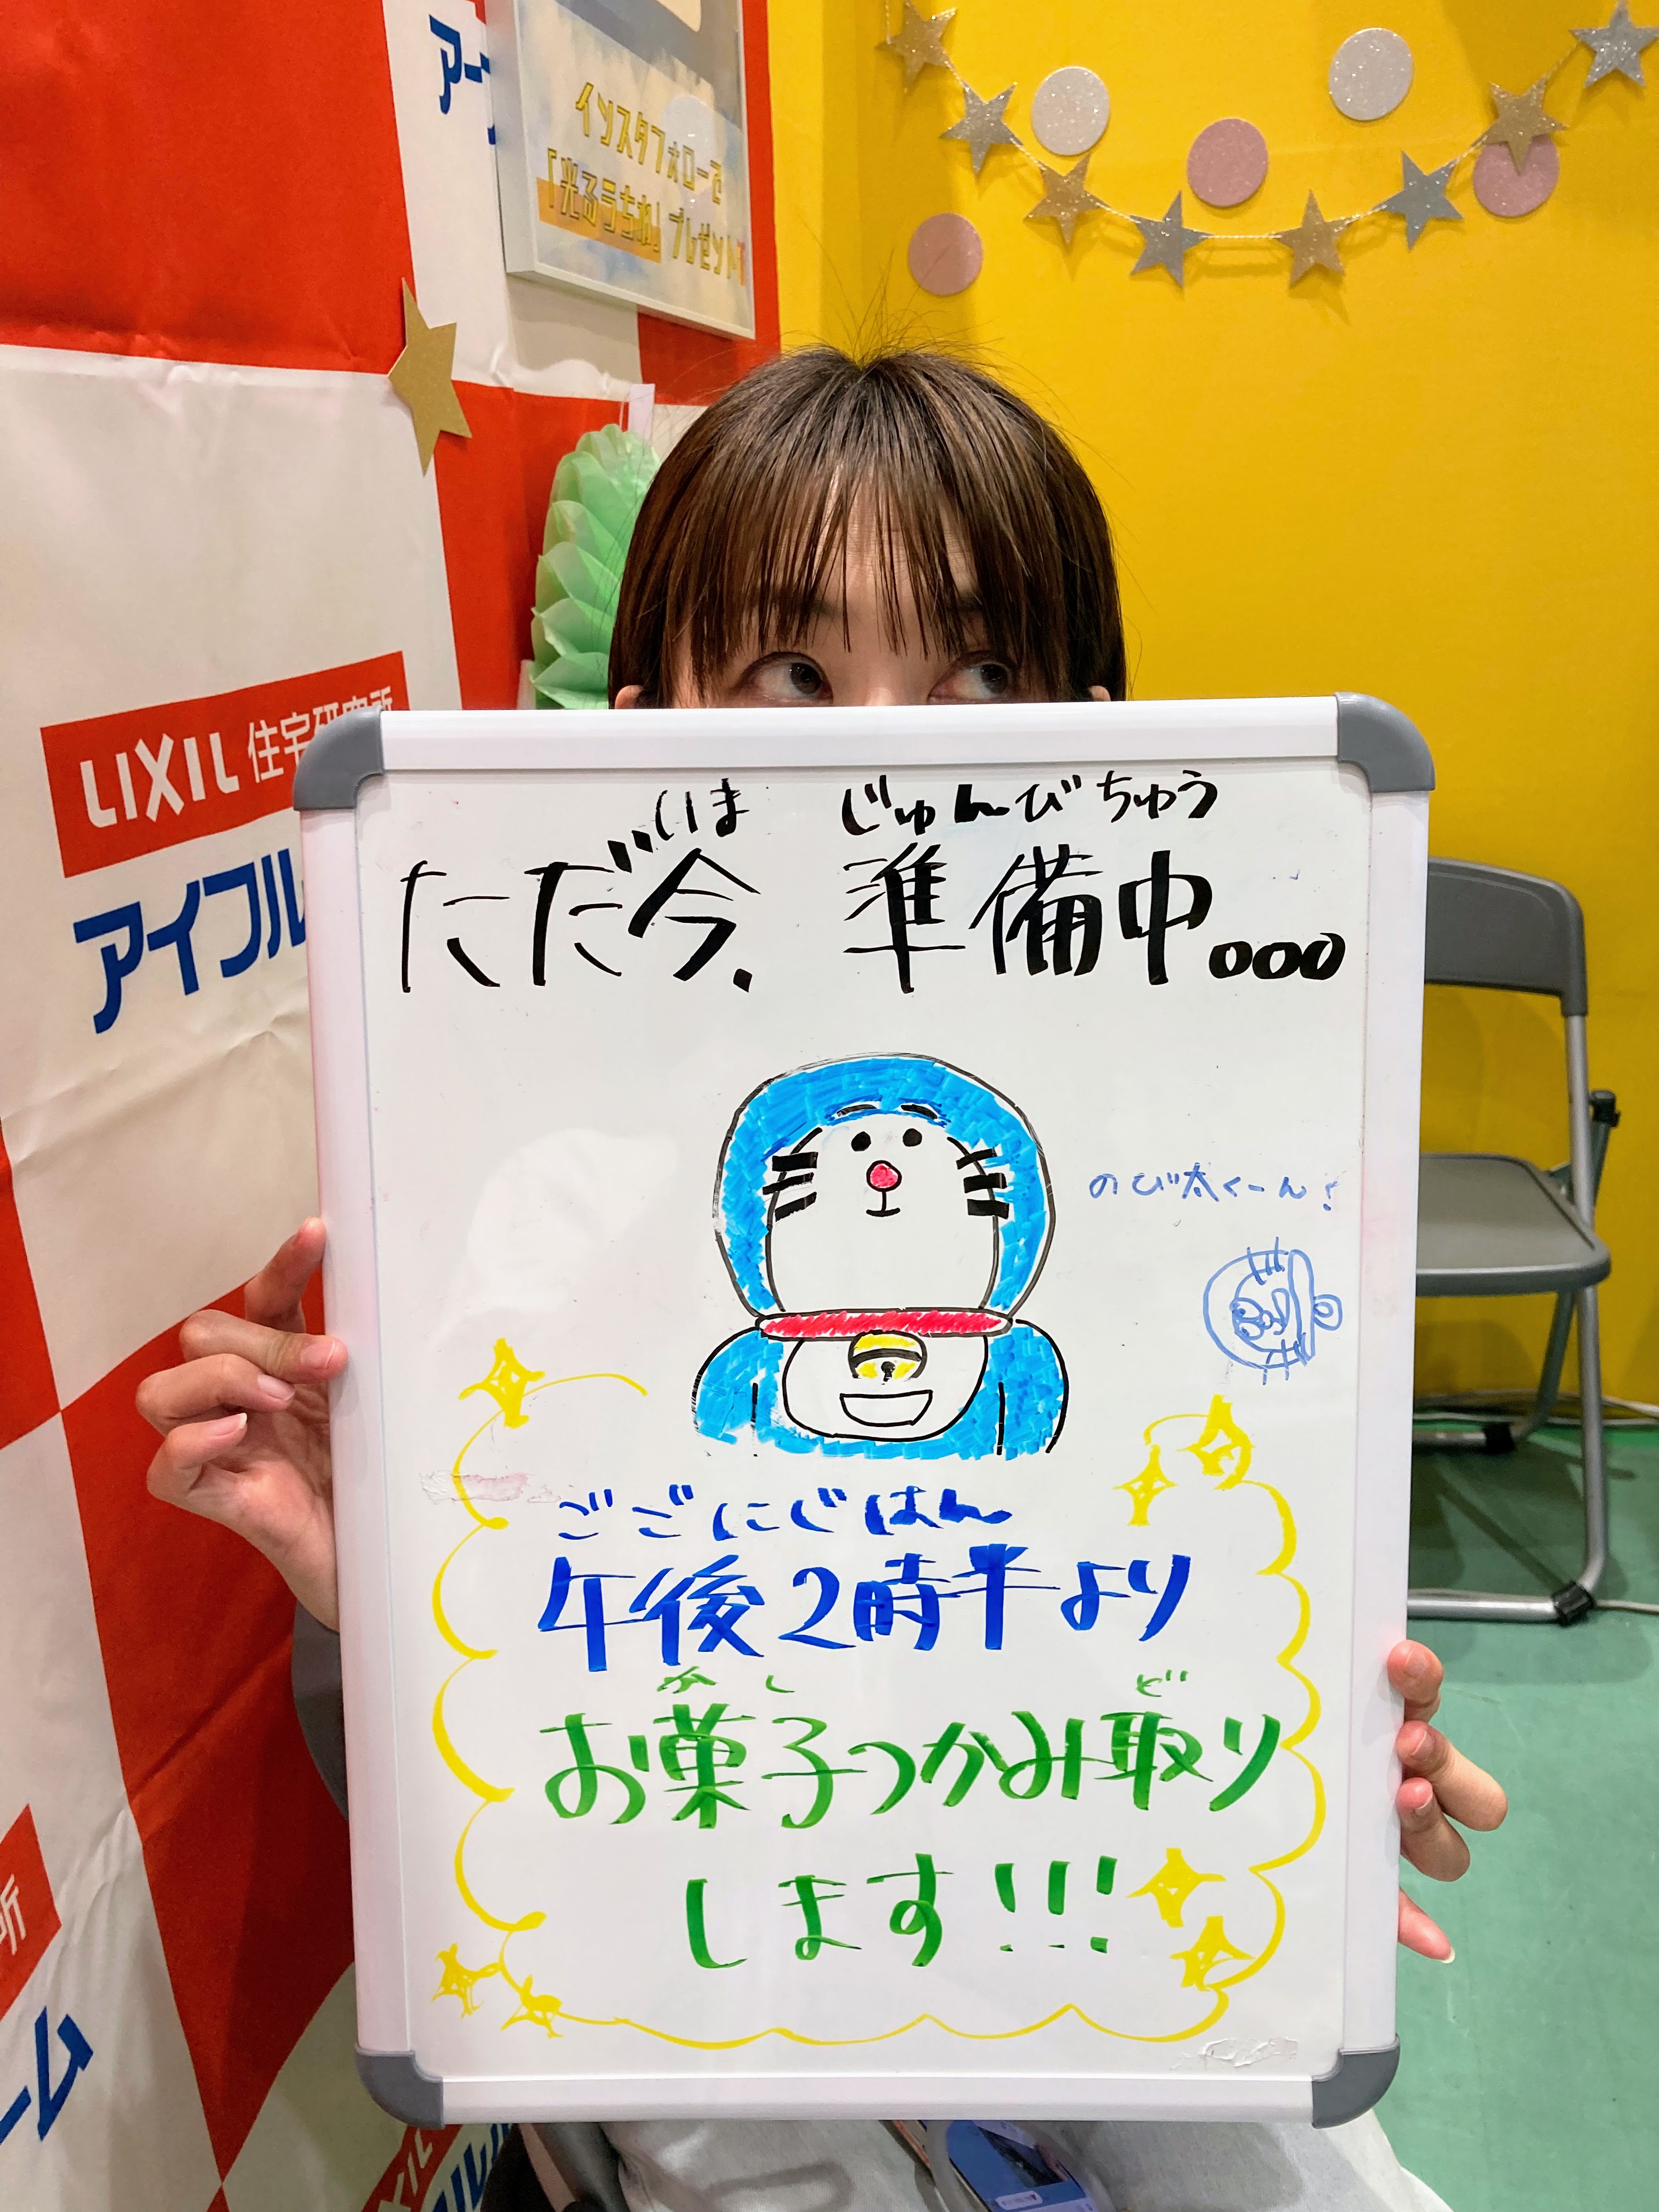 アー
インスタフォローで
「光るうちわ」プレゼント
LIXIL 住宅研究所
アイフル
いま じゅんびちゅう
ただ今、準備中...
のび太くーん!
ごごにじはん
午後2時半より
かし ど
お菓子つかみ取り
します!!!
所
ーム